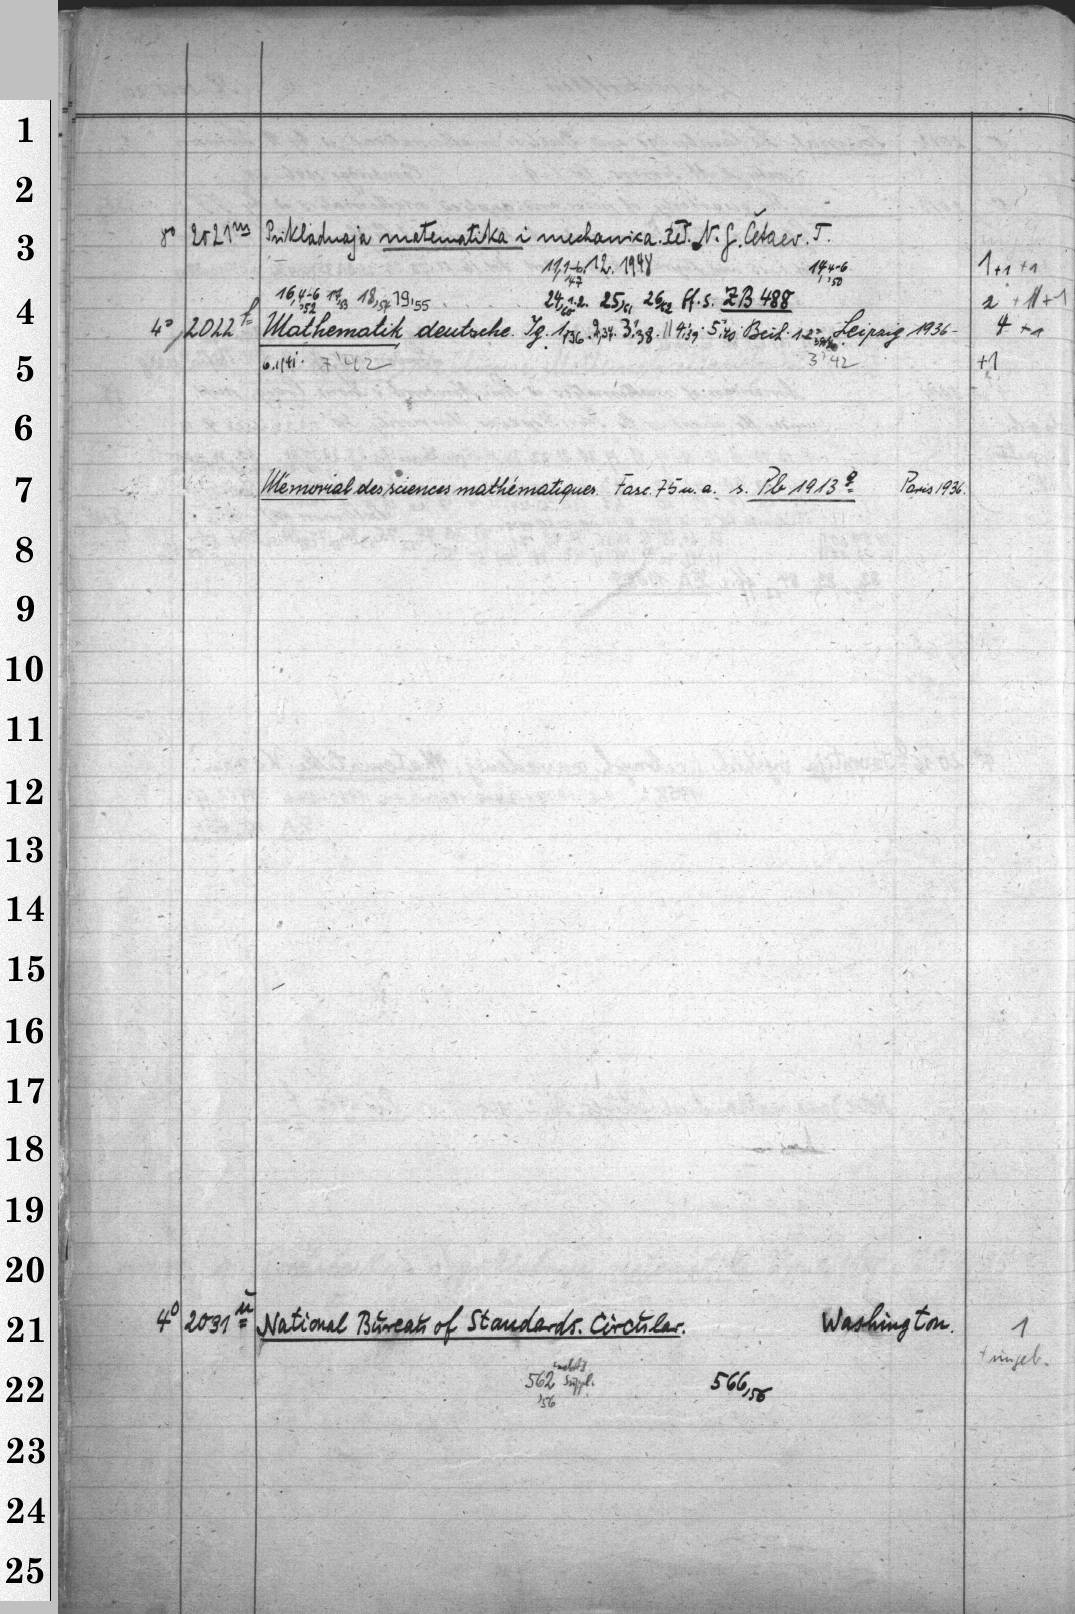 1
2
3 8° 2021 m Prikladnaja matematika i mechanika. Red. N. G. Četaev. T.
11,1-6,'47 12. 1948 14,4-6,'50 1+1+1
4 16,4-6,'52 17,'53 18,'54 19,'55 24,1.2.'60 25,'61 26,'62 ff. s. ZB 488 2 + 11+1
4° 2022 f Mathematik, deutsche. Jg. 1,'36. 2,'37. 3,'38. 4,'39 5,'40. Beih. 1-2 Leipzig 1936- 4 +1
5 6.'41. 7'42 3'42 +1
6
7 Mémorial des sciences mathématiques. Fasc. 75 u. a. s. Pb 1913 q Paris 1936.
8
9
10
11
12
13
14
15
16
17
18
19
20
21 4° 2031 u National Bureau of Standards. Circular. Washington. 1
+ ungeb.
22 562,'56 Suppl. 566,56
23
24
25